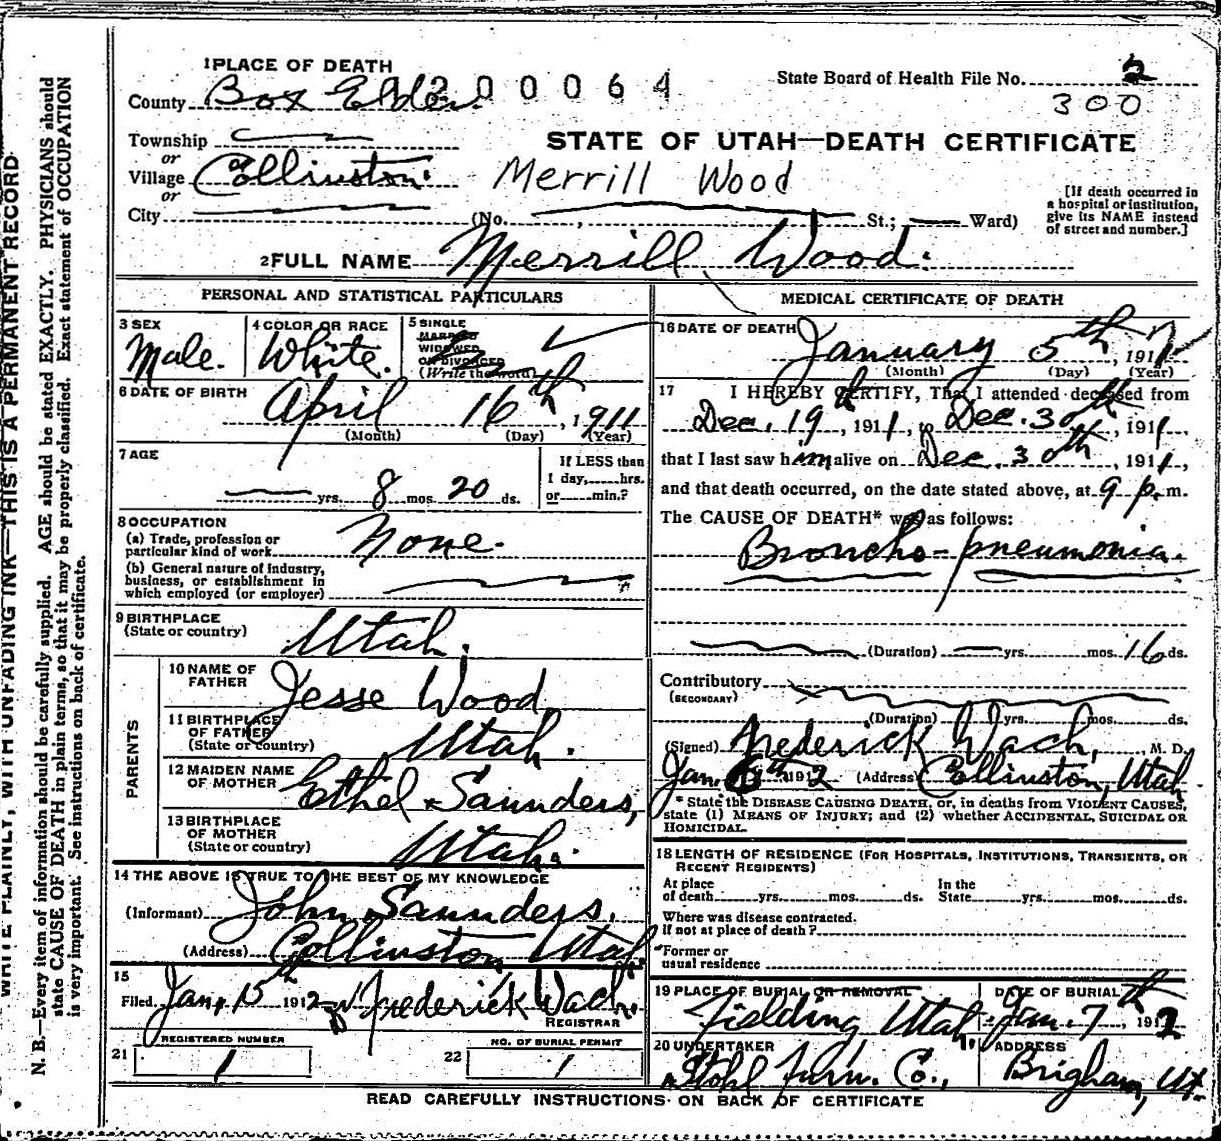 1 PLACE OF DEATH
County Box Elder 200064
State Board of Health File No. 2
300
Township
or
Village Collinston.
or
City
STATE OF UTAH—DEATH CERTIFICATE
Merrill Wood
(No. , St.; Ward)
[If death occurred in
a hospital or institution,
give its NAME instead
of street and number.]
2 FULL NAME Merrill Wood.
PERSONAL AND STATISTICAL PARTICULARS
3 SEX
Male.
4 COLOR OR RACE
White.
5 SINGLE
MARRIED
WIDOWED
OR DIVORCED
(Write the word)
6 DATE OF BIRTH
April 16th, 1911
(Month) (Day) (Year)
7 AGE
yrs. 8 mos. 20 ds.
If LESS than
1 day, hrs.
or min.?
8 OCCUPATION
(a) Trade, profession or
particular kind of work None.
(b) General nature of industry,
business, or establishment in
which employed (or employer)
9 BIRTHPLACE
(State or country) Utah.
PARENTS
10 NAME OF
FATHER Jesse Wood
11 BIRTHPLACE
OF FATHER
(State or country) Utah.
12 MAIDEN NAME
OF MOTHER Ethel Saunders,
13 BIRTHPLACE
OF MOTHER
(State or country) Utah.
14 THE ABOVE IS TRUE TO THE BEST OF MY KNOWLEDGE
(Informant) John Saunders.
(Address) Collinston, Utah.
15
Filed Jan, 15th 1912 Frederick Wach.
REGISTRAR
REGISTERED NUMBER
21 1
NO. OF BURIAL PERMIT
22 1
MEDICAL CERTIFICATE OF DEATH
16 DATE OF DEATH
January 5th, 191
(Month) (Day) (Year)
17 I HEREBY CERTIFY, That I attended deceased from
Dec. 19th, 1911, to Dec. 30th, 1911,
that I last saw him alive on Dec. 30th, 1911,
and that death occurred, on the date stated above, at 9 p.m.
The CAUSE OF DEATH* was as follows:
Broncho-pneumonia.
(Duration) yrs. mos. 16 ds.
Contributory
(SECONDARY)
(Duration) yrs. mos. ds.
(Signed) Frederick Wach, M. D.
Jan. 6th 1912 (Address) Collinston, Utah
* State the DISEASE CAUSING DEATH, or, in deaths from VIOLENT CAUSES,
state (1) MEANS OF INJURY; and (2) whether ACCIDENTAL, SUICIDAL OR
HOMICIDAL.
18 LENGTH OF RESIDENCE (FOR HOSPITALS, INSTITUTIONS, TRANSIENTS, OR
RECENT RESIDENTS)
At place
of death yrs. mos. ds.
In the
State yrs. mos. ds.
Where was disease contracted.
if not at place of death?
Former or
usual residence
19 PLACE OF BURIAL OR REMOVAL
Fielding Utah.
DATE OF BURIAL
Jan. 7th, 1912
20 UNDERTAKER
Stohl Furn. Co.,
ADDRESS
Brigham, Ut.
READ CAREFULLY INSTRUCTIONS ON BACK OF CERTIFICATE
WRITE PLAINLY, WITH UNFADING INK—THIS IS A PERMANENT RECORD
N. B.—Every item of information should be carefully supplied. AGE should be stated EXACTLY. PHYSICIANS should
state CAUSE OF DEATH in plain terms, so that it may be properly classified. Exact statement of OCCUPATION
is very important. See instructions on back of certificate.